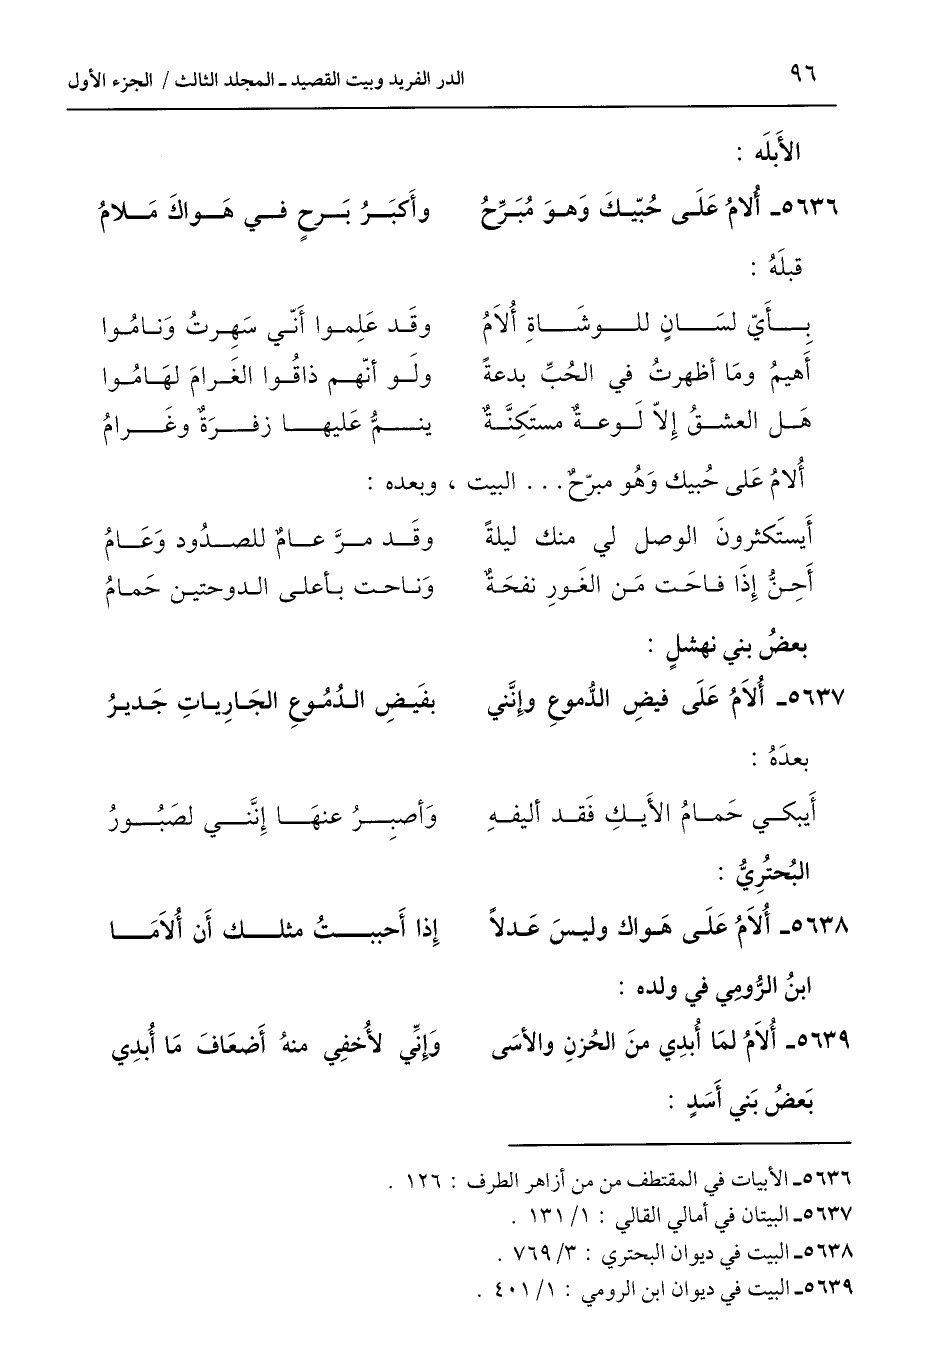 ٩٦ الدر الفريد وبيت القصيد ـ المجلد الثالث / الجزء الأول
الأَبلَه :
٥٦٣٦ـ أُلامُ عَلَى حُبّيكَ وَهوَ مُبَرِّحُ وأَكبَرُ بَرحٍ في هَواكَ مَلامُ
قبلَهُ :
بِأَيّ لسَانٍ للوشَاةِ أُلاَمُ وقَد عَلِموا أَنّي سَهِرتُ وَنَامُوا
أَهيمُ ومَا أظهرتُ في الحُبِّ بدعةً ولَو أنّهم ذاقُوا الغَرامَ لهَامُوا
هَل العشقُ إلاّ لَوعةٌ مستَكِنَّةٌ ينمُّ عَليها زفرَةٌ وغَرامُ
أُلامُ عَلى حُبيك وَهُو مبرّحٌ. . . البيت ، وبعده :
أَيستَكثرونَ الوصلَ لي منك ليلةً وقَد مرَّ عامٌ للصدُود وَعَامُ
أَحِنُّ إذَا فاحَت مَن الغَورِ نفحَةٌ وَناحت بأعلى الدوحتين حَمامُ
بعضُ بني نهشلٍ :
٥٦٣٧ـ أُلاَمُ عَلَى فيضِ الدُّموعِ وإنَّني بفَيضِ الدُمُوعِ الجَارِياتِ جَديرُ
بعدَهُ :
أَيبكي حَمامُ الأَيكِ فَقد أليفهِ وَأصبِرُ عنهَا إنَّني لصَبُورُ
البُحتُرِيُّ :
٥٦٣٨ـ أُلاَمُ عَلَى هَواك وليسَ عَدلاً إذا أَحببتُ مثلك أن أُلاَمَا
ابنُ الرُّومِي في ولده :
٥٦٣٩ـ أُلاَمُ لمَا أُبدِي منَ الحُزنِ والأسَى وَإنِّي لأُخفِي منهُ أَضعَافَ مَا أُبدِي
بَعضُ بَني أَسَدٍ :
٥٦٣٦ـ الأبيات في المقتطف من من أزاهر الطرف : ١٢٦ .
٥٦٣٧ـ البيتان في أمالي القالي : ١/ ١٣١ .
٥٦٣٨ـ البيت في ديوان البحتري : ٣/ ٧٦٩ .
٥٦٣٩ـ البيت في ديوان ابن الرومي : ١/ ٤٠١ .